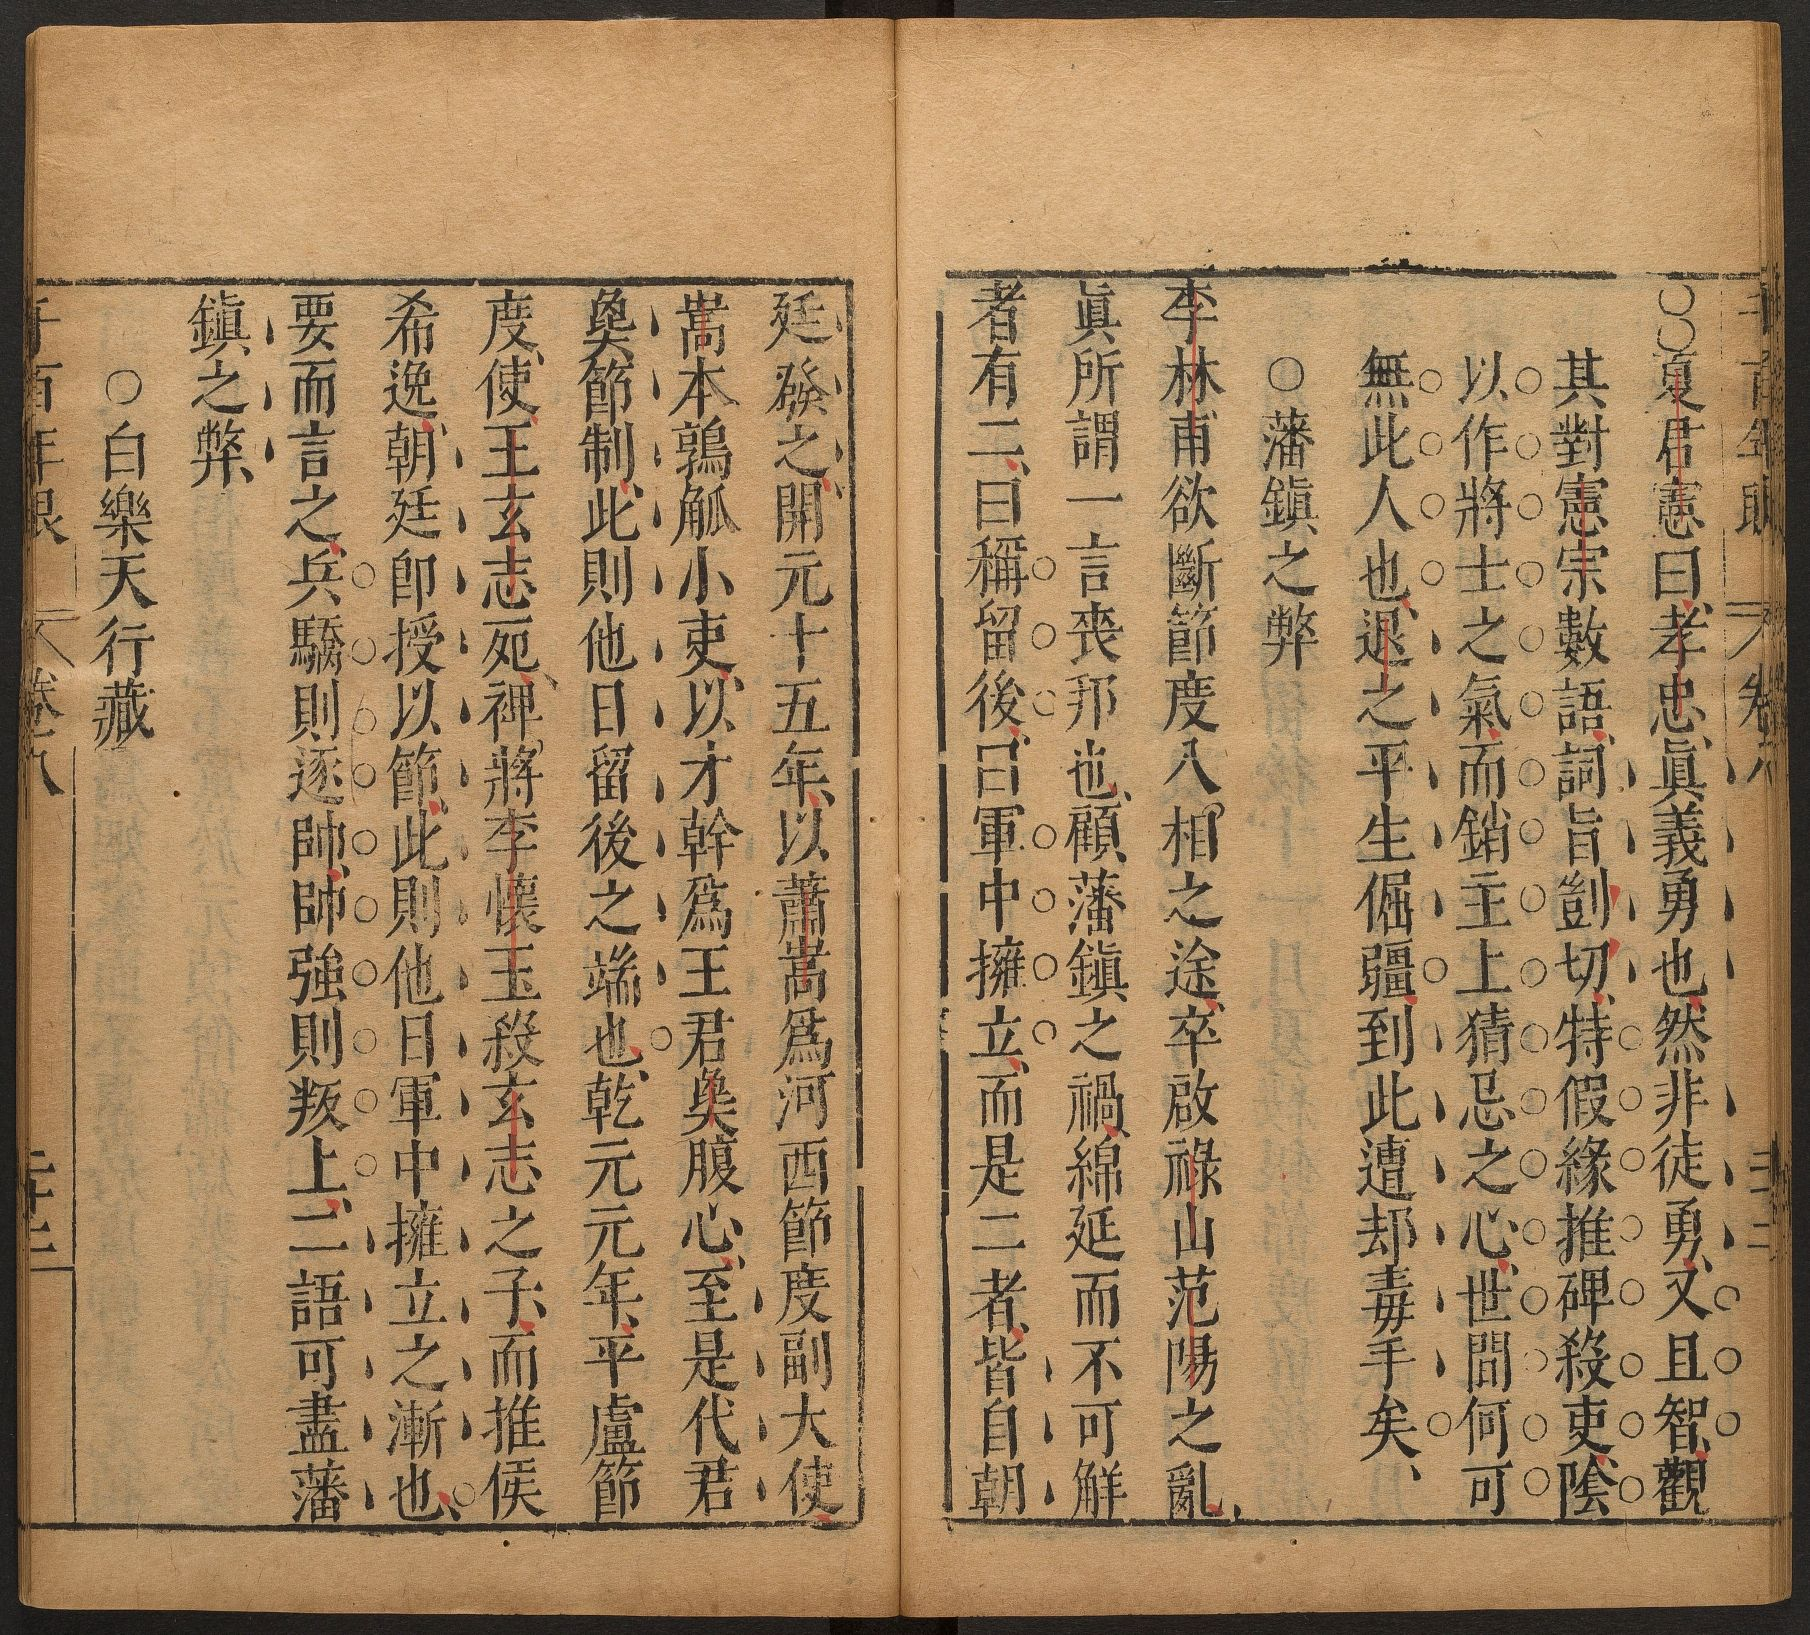 千百年眼 卷八 二十二
○○夏君憲曰、孝忠、眞義勇也、然非徒勇、又且智、觀
其對憲宗數語、詞旨剴切、特假緣推碑殺吏、陰
以作將士之氣、而銷主上猜忌之心、世間何可
無此人也、退之平生倔疆、到此遭却毒手矣、
○藩鎭之弊
李林甫欲斷節度入相之途、卒啟祿山范陽之亂、
眞所謂一言喪邦也、顧藩鎭之禍、綿延而不可觧
者有二、曰稱留後、曰軍中擁立、而是二者、皆自朝
廷發之、開元十五年、以蕭嵩爲河西節度副大使、
嵩本鶉觚小吏、以才幹爲王君㚟腹心、至是代君
㚟節制、此則他日留後之端也、乾元元年、平盧節
度使、王玄志死、裨將李懷玉殺玄志之子、而推侯
希逸、朝廷卽授以節、此則他日軍中擁立之漸也、
要而言之、兵驕則逐帥、帥強則叛上、二語可盡藩
鎭之弊、
○白樂天行藏
千百年眼 卷八 二十三